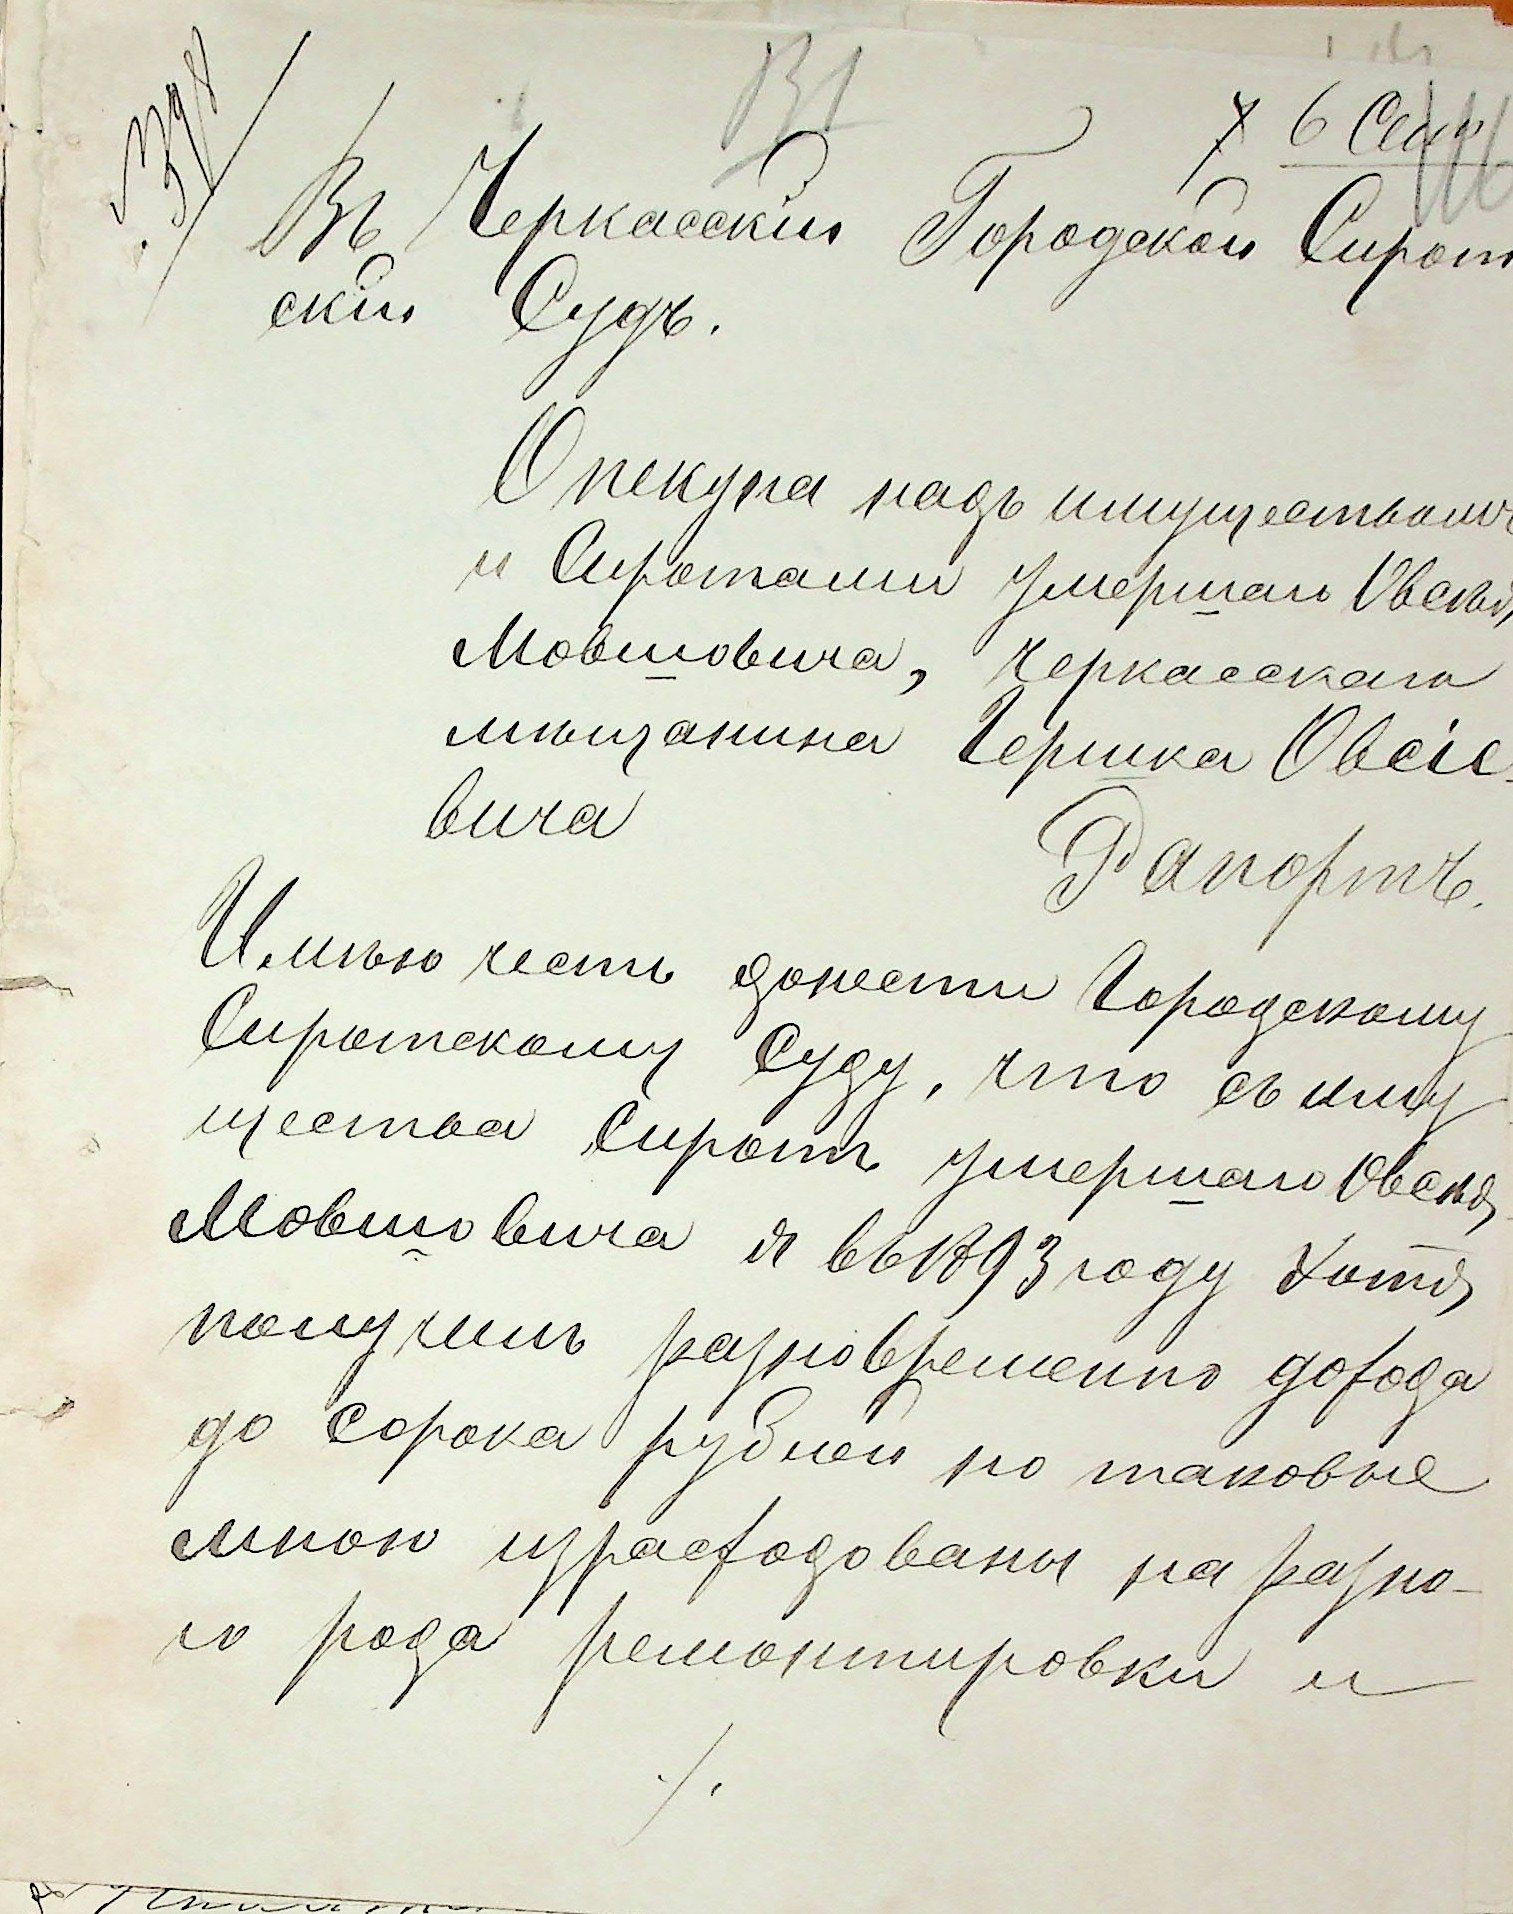 398
6 Сент
Въ Черкасскій Городской Сирот
скій Судъ.
Опекуна надъ имуществомъ
и Сиротами умершаго Овсѣя
Мовшовича, Черкасскаго
мѣщанина Гершка Овсіе-
вича
Рапортъ.
Имѣю честь донести Городскому
Сиротскому Суду, что съ иму
щества Сиротъ умершаго Овсѣя
Мовшовича я въ 1893 году хотя
получилъ разновременно дохода
до сорока рублей но таковые
мною израсходованы на разно-
го рода ремонтировки и
./.